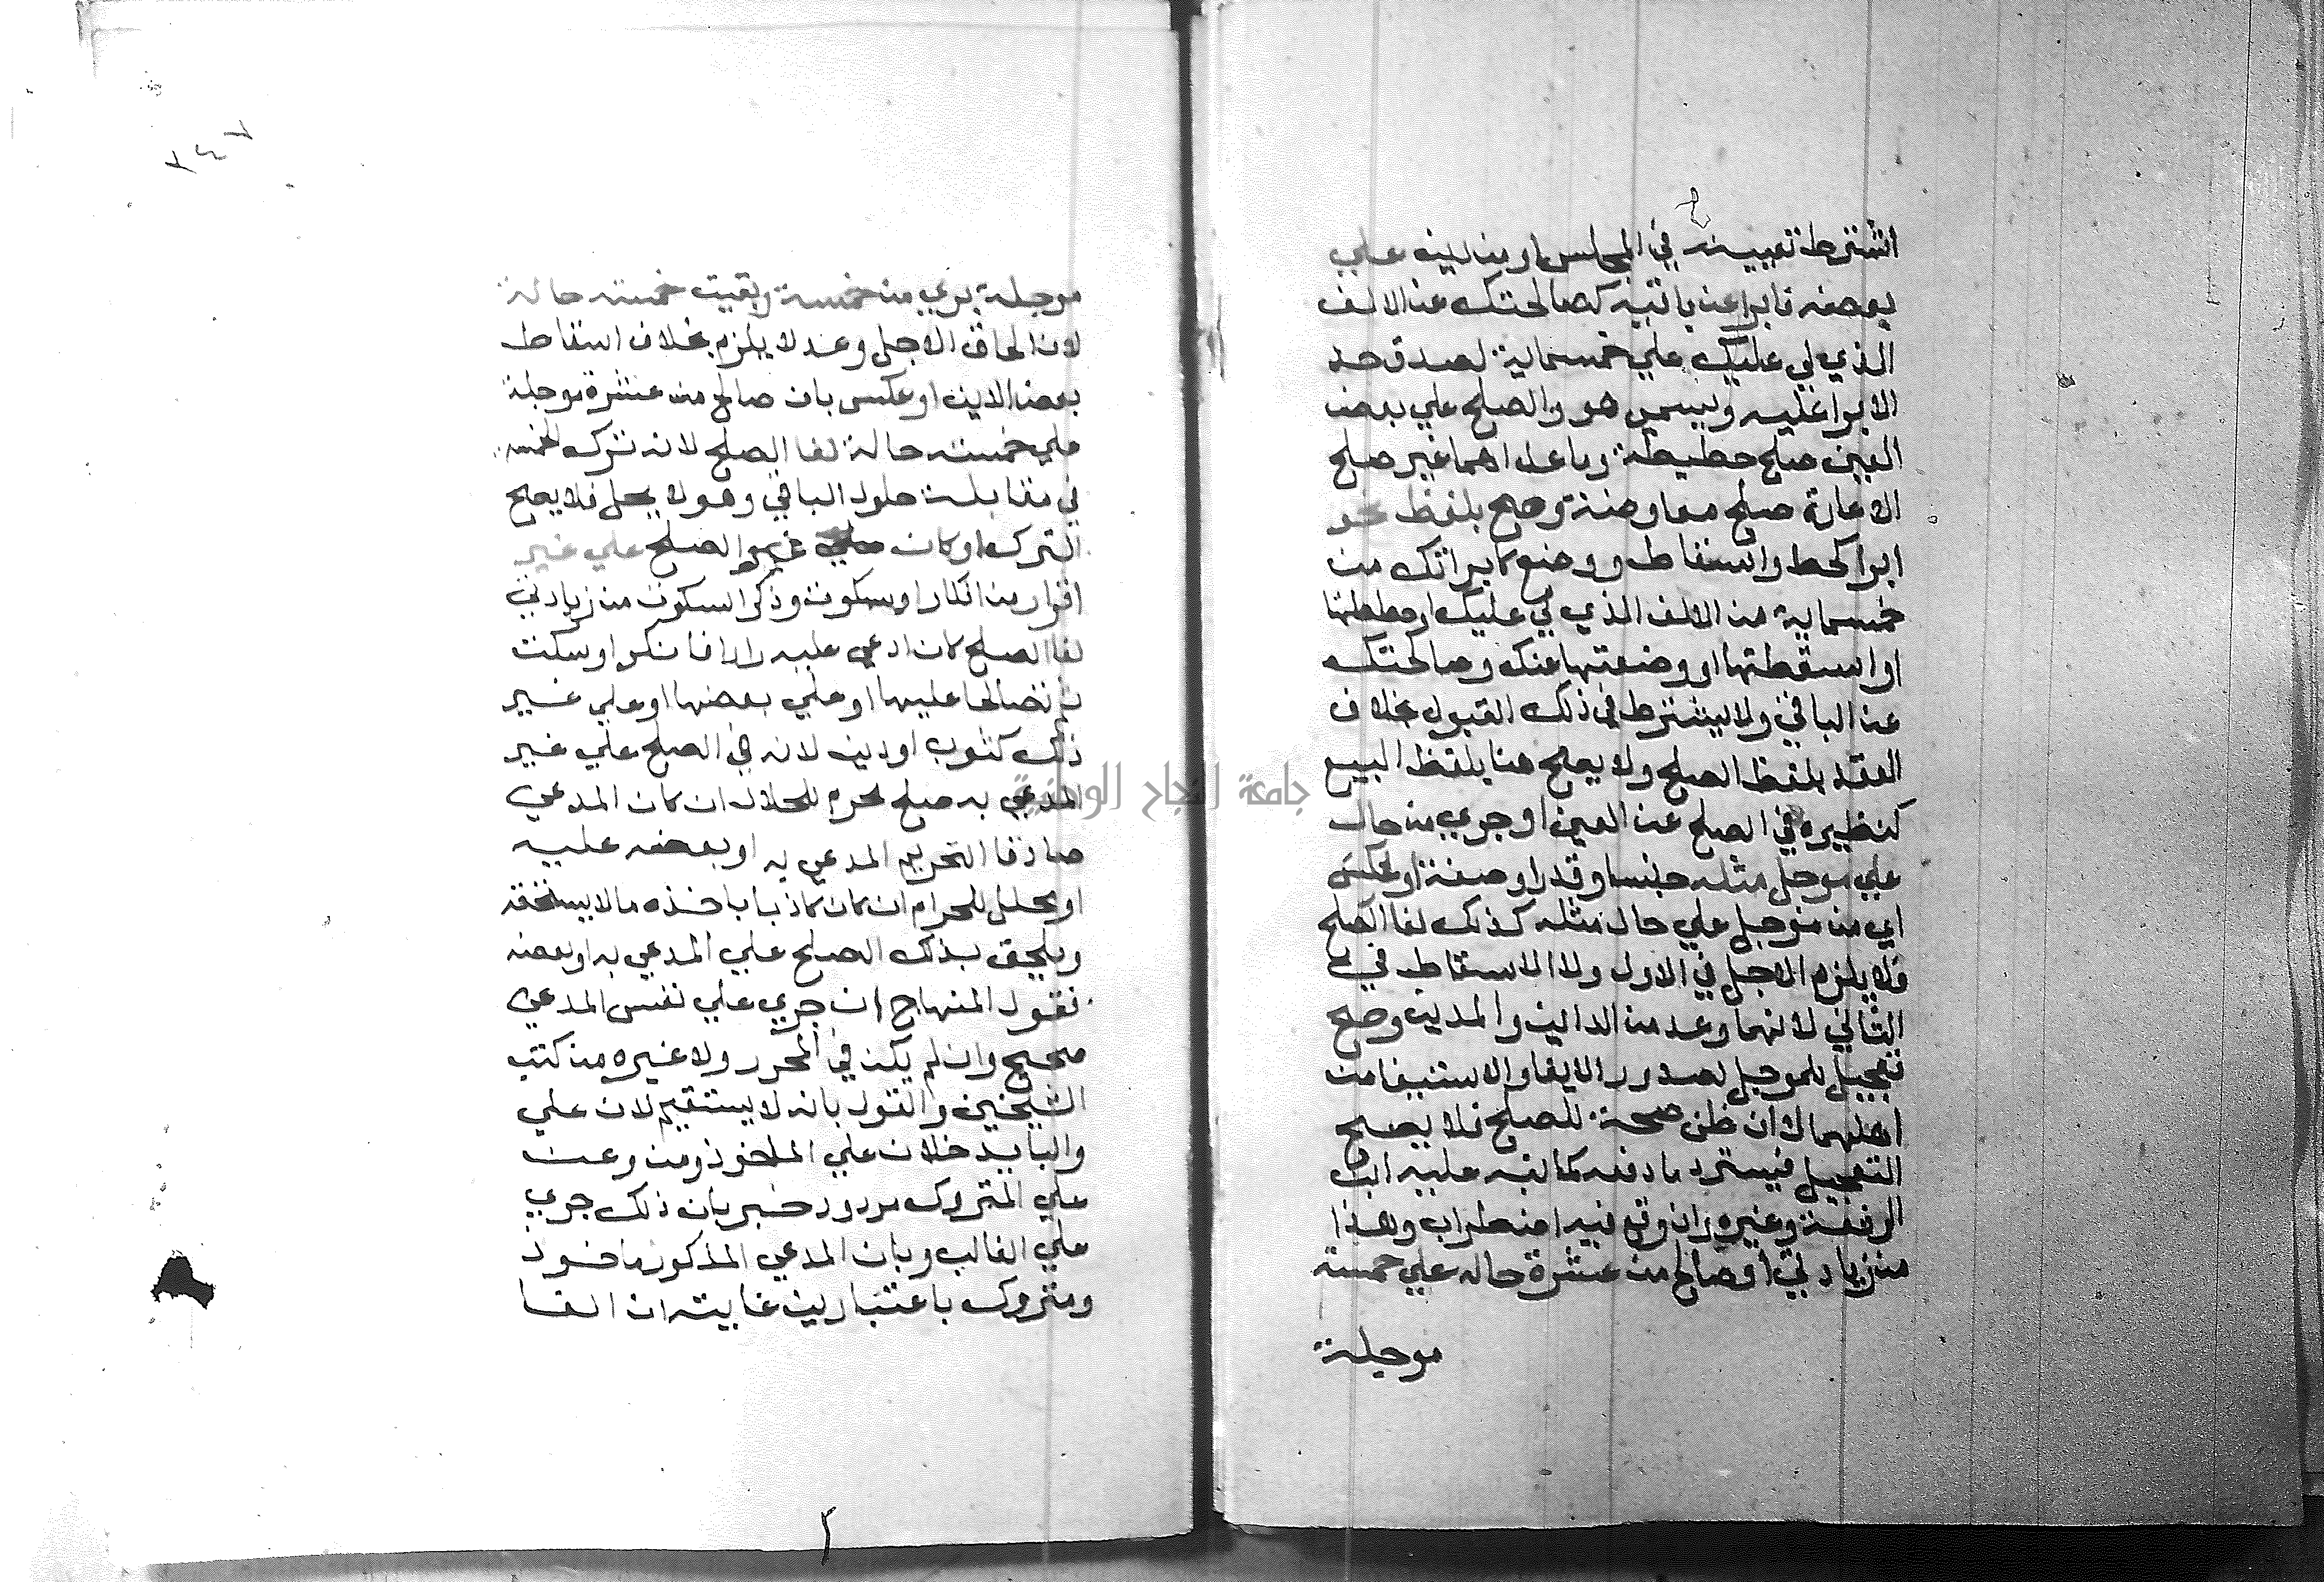 اشترط تعيينه في المجلس او من دينه علي
بعضه فابرا عن باقيه كصالحتك عن الالف
الذي لي عليك علي خمسماية لصدق حد
الابرا عليه ويسمي هو والصلح علي بعض
العين صلح حطيطة وما عداهما غير صلح
الاعارة صلح معاوضة وصح بلفظ نحو
ابرا كحط واسقاط ووضع كابراتك من
خمسماية من الالف الذي لي عليك او حططتها
او اسقطتها او وضعتها عنك وصالحتك
عن الباقي ولا يشترط في ذلك القبول بخلاف
العقد بلفظ الصلح ولا يصح هنا بلفظ البيع
كنظيره في الصلح عن العين او جري من حال
علي موجل مثله جنسا وقدرا وصفة او عكس
اي من موجل علي حال مثله كذلك لغا الصلح
فلا يلزم الاجل في الاول ولا الاسقاط في
الثاني لانهما وعد من الداين والمدين وصح
تعجيل للموجل لصدور الايفا والاستيفا من
اهلهما لا ان ظن صحة للصلح فلا يصح
التعجيل فيسترد ما دفعه كما نبه عليه ابن
الرفعة وغيره وان وقع فيه اضطراب وهذا
من زيادتي او صالح من عشرة حاله علي خمسة
موجلة
٢٤٧
موجلة بري من خمسة وبقيت خمسه حالة
لان الحاق الاجل وعد لا يلزم بخلاف اسقاط
بعض الدين او عكس بان صالح من عشرة موجلة
علي خمسه حالة لغا الصلح لانه ترك الخمسه
في مقابلة حلول الباقي وهو لا يحل فلا يصح
الترك او كان الصلح علي غير
اقرار من انكار او سكوت وذكر السكوت من زيادتي
لغا الصلح كان ادعي عليه دارا فانكر او سكت
ثم تصالحا عليها او علي بعضها او علي غير
ذلك كثوب او دين لانه في الصلح علي غير
المدعي به صلح محرم للحلال ان كان المدعي
صادقا لتحريم المدعي به او بعضه عليه
او محلل للحرام ان كان كاذبا باخذه ما لا يستحقه
ويلحق بذلك الصلح علي المدعي به او بعضه
فقول المنهاج ان جري علي نفس المدعي
صحيح وان لم يكن في المحرر ولا غيره من كتب
الشيخين والقول بانه لا يستقيم لان علي
والبا يدخلان علي الماخوذ ومن وعن
علي المتروك مردود خبر بان ذلك جري
علي الغالب وبان المدعي المذكور ماخوذ
ومتروك باعتبارين غايته ان الغا
جامعة النجاح الوطنية